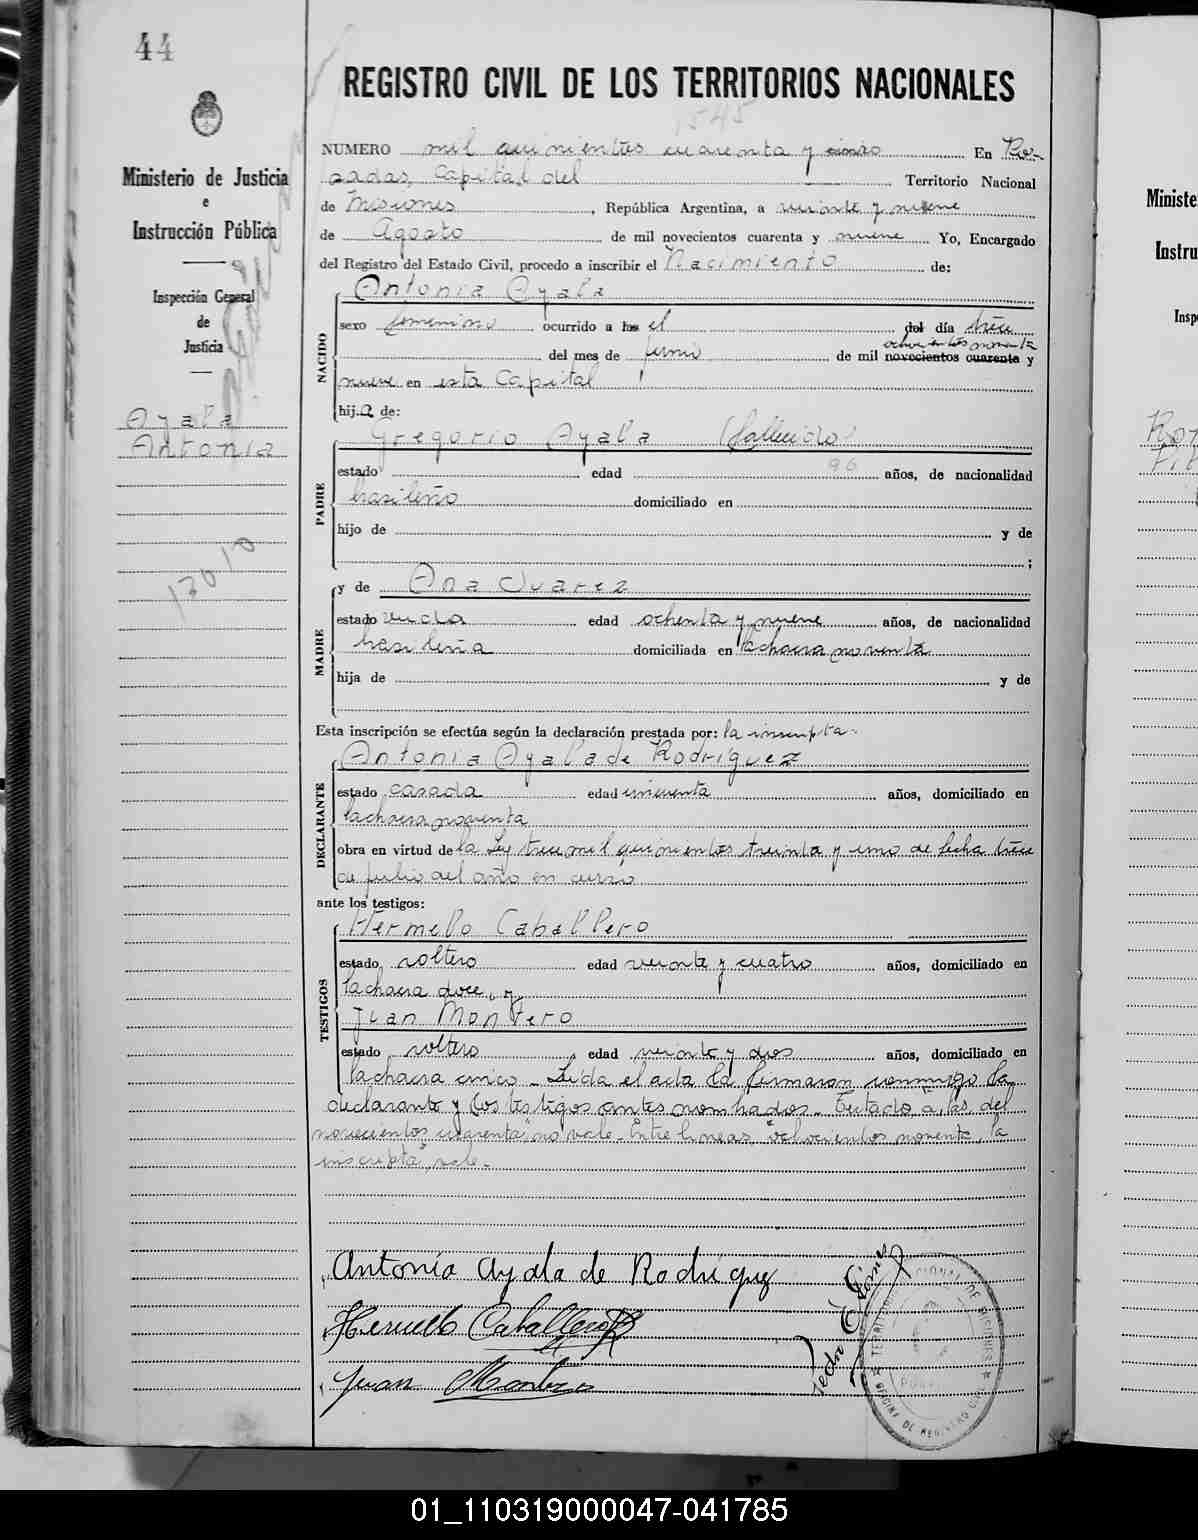 44
REGISTRO CIVIL DE LOS TERRITORIOS NACIONALES
1545
Ministerio de Justicia
e
Instrucción Pública
Inspección General
de
Justicia
Ayala
Antonia
13010
NUMERO mil quinientos cuarenta y cinco En Po-
sadas, Capital del Territorio Nacional
de Misiones, República Argentina, a veinte y nueve
de Agosto de mil novecientos cuarenta y nueve Yo, Encargado
del Registro del Estado Civil, procedo a inscribir el Nacimiento de:
NACIDO
Antonia Ayala
sexo femenino ocurrido a las el del día trece
ochocientos noventa
del mes de junio de mil novecientos cuarenta y
nueve en esta Capital
hij.a de:
PADRE
Gregorio Ayala (fallecido)
estado edad 96 años, de nacionalidad
brasileño domiciliado en
hijo de y de
;
MADRE
y de Ana Suarez
estado viuda edad ochenta y nueve años, de nacionalidad
brasileña domiciliada en la chacra noventa
hija de y de
Esta inscripción se efectúa según la declaración prestada por: la inscripta.
DECLARANTE
Antonia Ayala de Rodriguez
estado casada edad cincuenta años, domiciliado en
la chacra noventa
obra en virtud de la Ley trece mil quinientos treinta y uno de fecha trece
de julio del año en curso
ante los testigos:
TESTIGOS
Hermelo Caballero
estado soltero edad veinte y cuatro años, domiciliado en
la chacra doce, y
Juan Montero
estado soltero edad veinte y dos años, domiciliado en
la chacra cinco - Leída el acta la firmaron conmigo la
declarante y los testigos antes nombrados. Testado "a, las, del
novecientos cuarenta" no vale. Entre lineas, "ochocientos noventa, la
inscripta", vale.
Antonia Ayala de Rodriguez
Hermelo Caballero
Juan Montero
OFICINA DE REGISTRO CIVIL
01_110319000047-041785